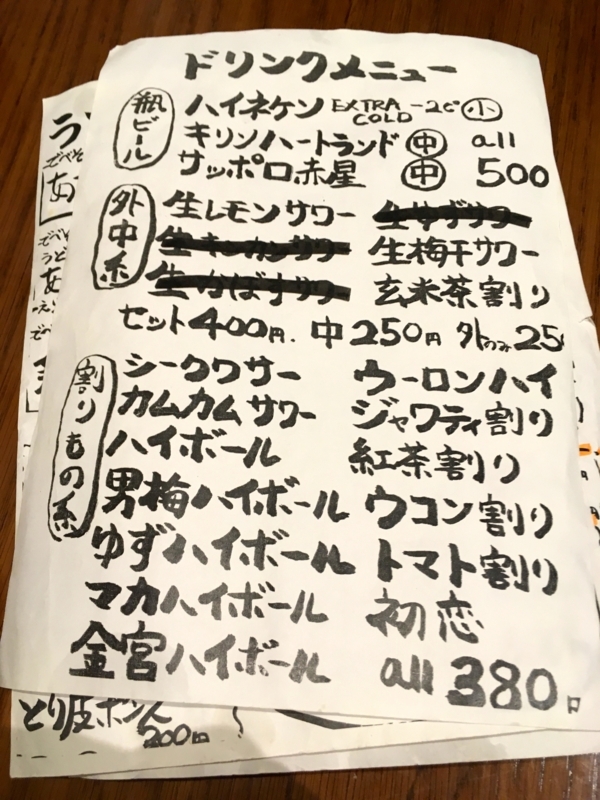 ドリンクメニュー
瓶ビール
ハイネケン EXTRA COLD -2℃ 小
キリンハートランド 中 all
サッポロ赤星 中 500
外中系
生レモンサワー 生ゆずサワー
生キンカンサワー 生梅干サワー
生かぼすサワー 玄米茶割り
セット400円. 中250円 外のみ25
割りもの系
シークワサー ウーロンハイ
カムカムサワー ジャワティ割り
ハイボール 紅茶割り
男梅ハイボール ウコン割り
ゆずハイボール トマト割り
マカハイボール 初恋
金宮ハイボール all 380円
とり皮ポン
200円